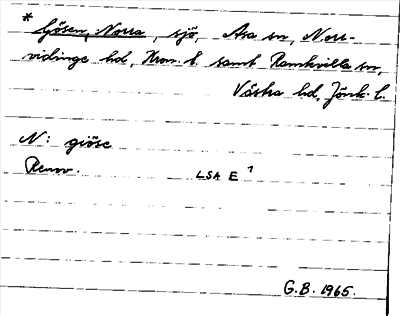 * Gösen, Norra, sjö, Asa sn, Norr-
vidinge hd, Kron. l. samt Ramkvilla sn,
Västra hd, Jönk. l.
N: giöse
Renov.
LSA E 1
G.B. 1965.